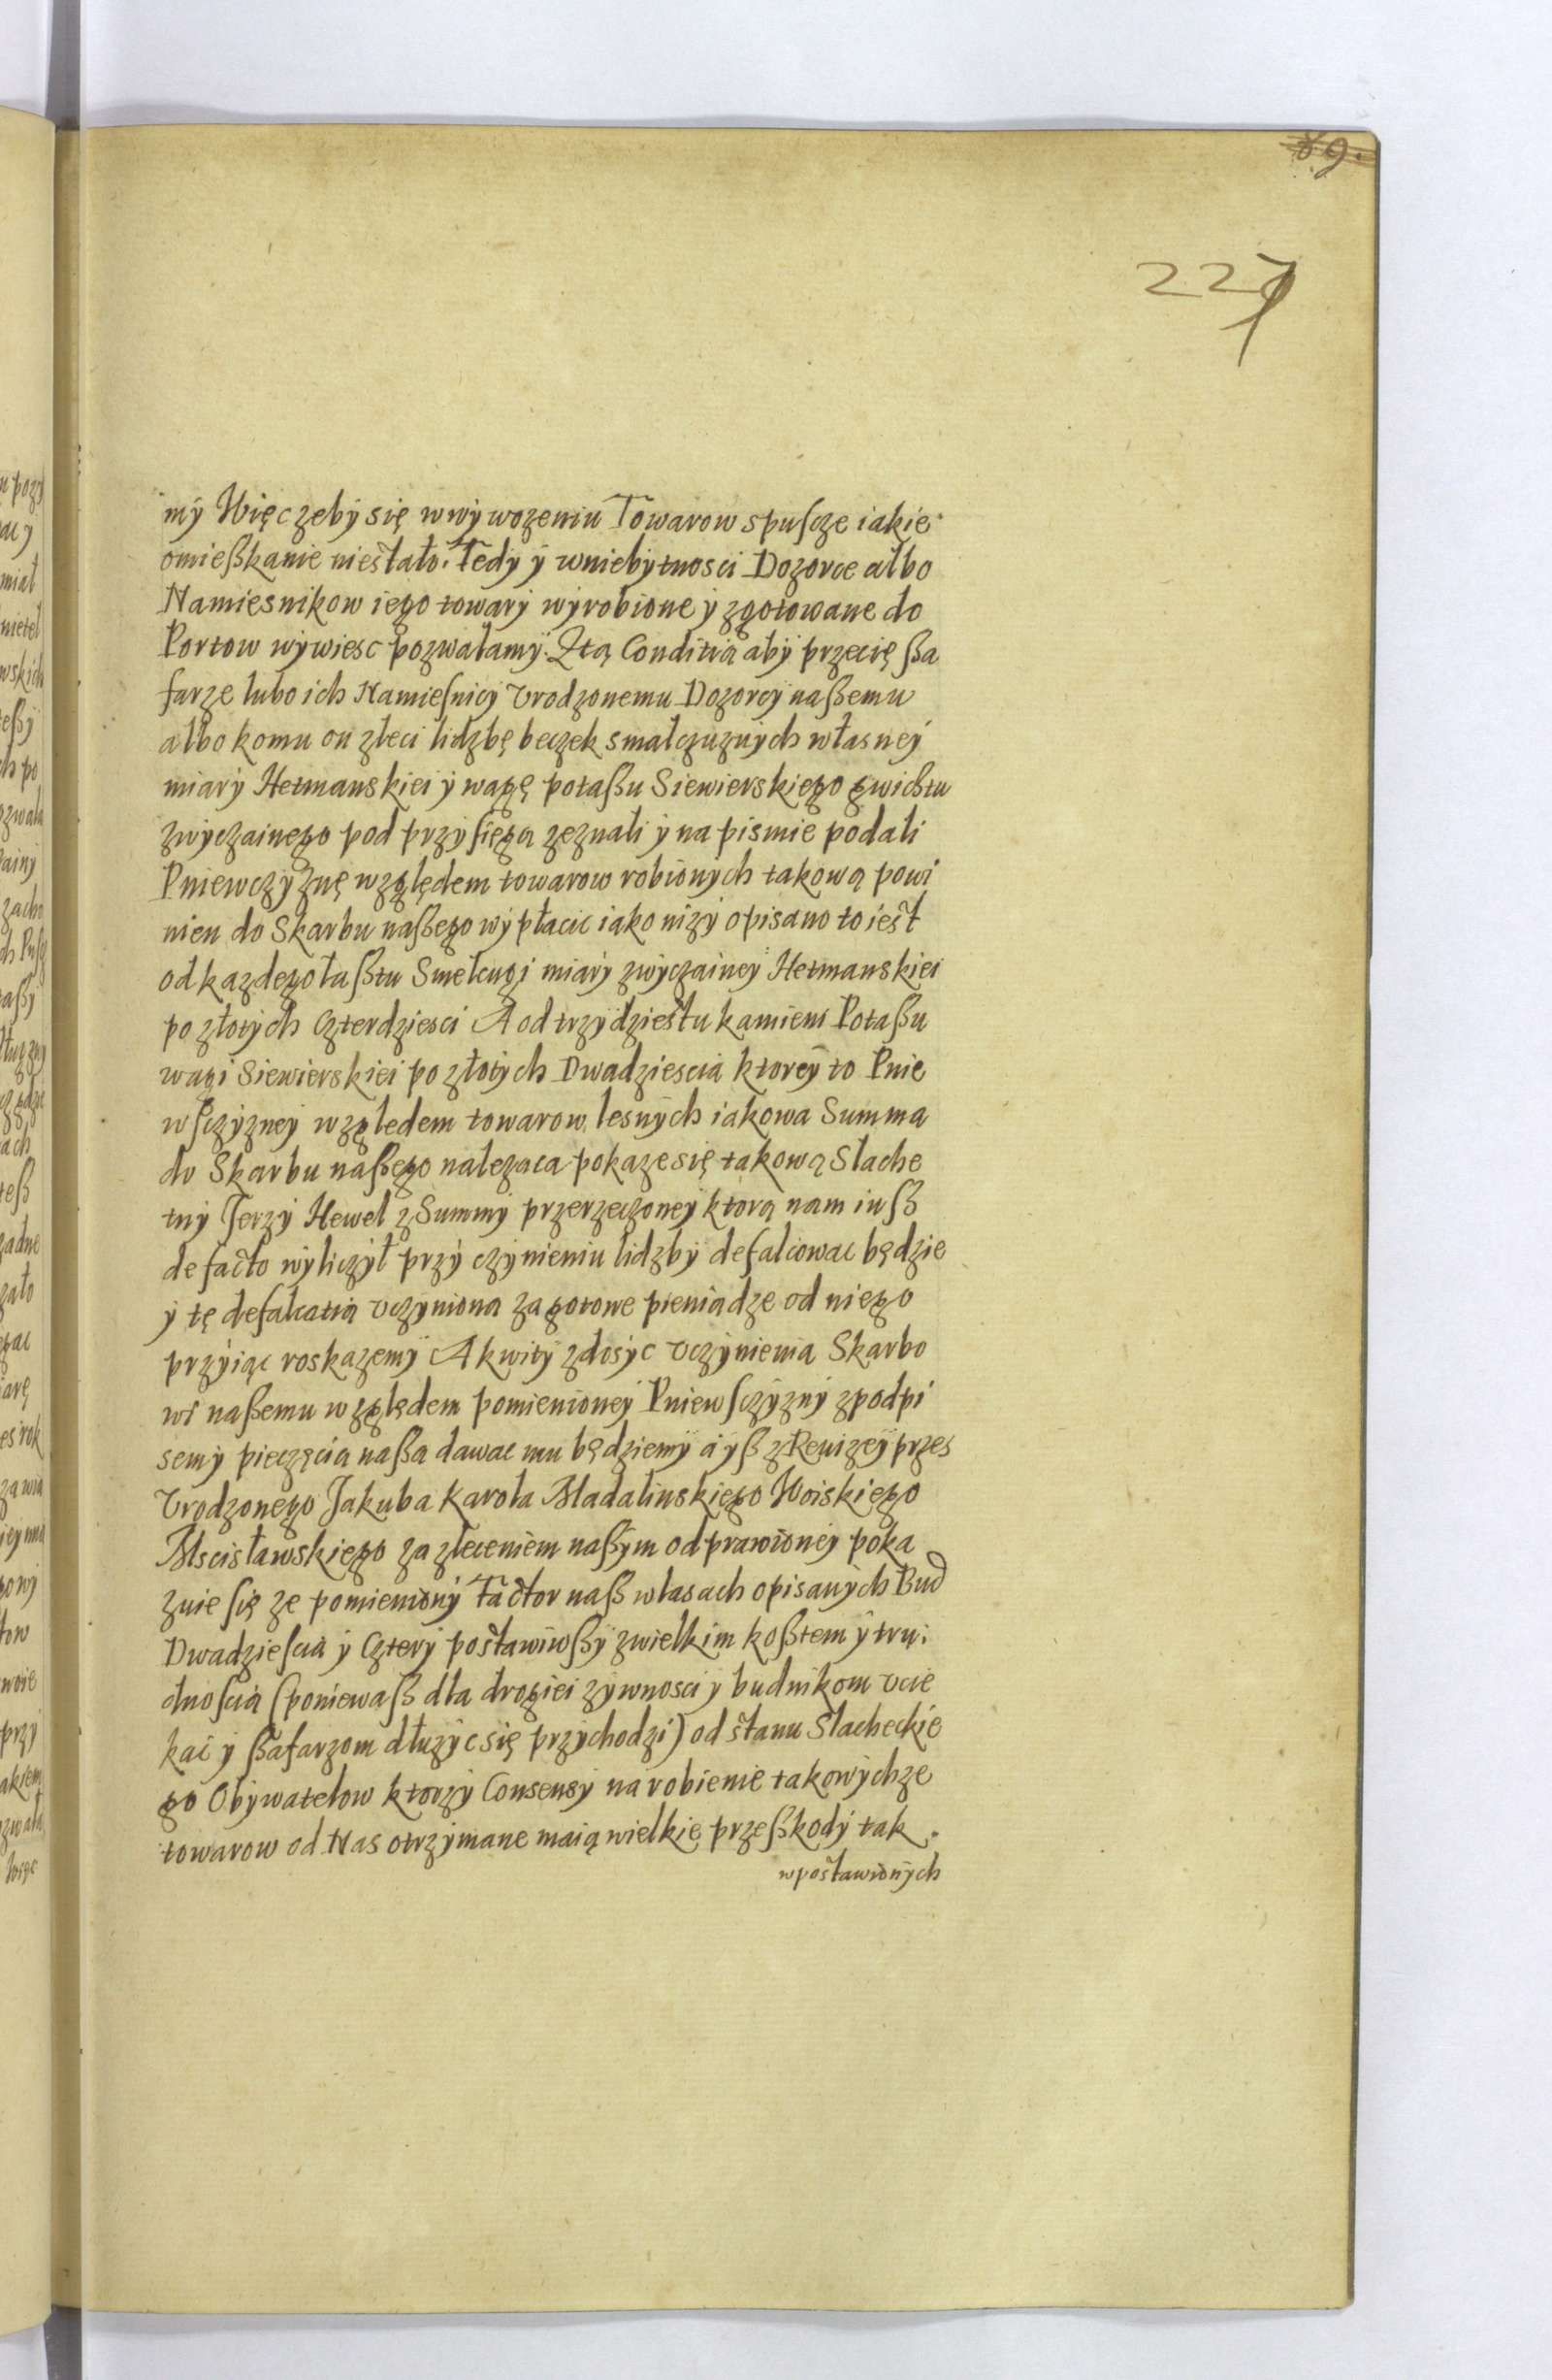 89.
227
mÿ Więc zebÿ się w wÿwozeniu Towarow spuscze iakie
omießkanie niestało. Tedÿ ÿ wniebytnosci Dozorce albo
Namiesnikow iego towarÿ wÿrobione ÿ zgotowane do
Portow wÿwiesc pozwalamÿ. Ztą Conditią abÿ przecię ßa
farze lubo ich Namiesnicÿ Vrodzonemu Dozorcÿ naßemu
albo komu on zleci lidzbę beczek smalczuznÿch własneÿ
miarÿ Hetmanskiei ÿ wagę potaßu Siewierskiego gwichtu
zwÿczainego pod przÿsięgą zeznali ÿ na pismie podali
Pniewczÿznę względem towarow robionÿch takową powi
nien do Skarbu naßego wÿpłacic iako nizÿ opisano to iest
od kazdego łaßtu Smelcugi miarÿ zwÿczaineÿ Hetmanskiei
po złotÿch Czterdziesci A od trzÿdziestu kamieni Potaßu
wagi Siewierskiei po złotÿch Dwadziescia ktoreÿ to Pnie
wsczÿzneÿ wzgledem towarow lesnÿch iakowa Summa
do Skarbu naßego nalezaca pokaze się takową Slache
tnÿ Jerzÿ Hewel z Summÿ przerzeczoneÿ ktorą nam iuß
de facto wÿliczÿł przÿ czÿnieniu lidzbÿ defalcowac będzie
ÿ tę defalcatią vczÿniona za gotowe pieniadze od niego
przÿiąc roskazemÿ A kwitÿ z dosÿc vczÿnienia Skarbo
wi naßemu względem pomienioneÿ Pniewsczÿznÿ z podpi
sem ÿ pieczęcią naßa dawac mu będziemÿ a ÿß z Rewizeÿ przes
Vrodzonego Jakuba Karola Madalinskiego Woiskiego
Mscisławskiego za zleceniem naßÿm odprawioneÿ poka
zuie się ze pomienionÿ Factor naß w lasach opisanÿch Bud
Dwadziescia ÿ Czterÿ postawiwßÿ z wielkim koßtem ÿ tru
dnoscią (poniewaß dla drogiei zÿwnosci ÿ budnikom vcie
kac ÿ ßafarzom dłuzÿc się przÿchodzi) od stanu Slacheckie
go Obÿwatelow ktorzÿ Consensÿ na robienie takowÿchze
towarow od Nas otrzÿmane maią wielkie przeßkodÿ tak
w postawionÿch